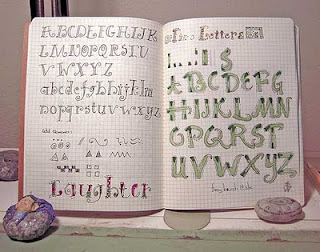 ABCDEFGHIJK
LMNOPQRSTU
VWXYZ
abcdefghijklm
nopqrstuvwxyz
add
Laughter
Letters
$
ABCDEFG
HIJKLMN
OPQRST
UVWXYZ